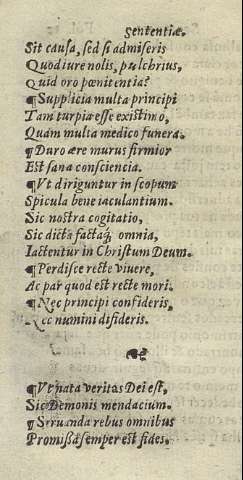 Sententiæ.
Sit causa, sed si admiseris
Quod iure nolis, pulchrius,
Quid oro pœnitentia?
¶ Supplicia multa principi
Tam turpia esse existimo,
Quàm multa medico funera.
¶ Duro ære murus firmior
Est sana consciencia.
¶ Vt diriguntur in scopum
Spicula bene iaculantium.
Sic nostra cogitatio,
Sic dicta factaq́; omnia,
Iactentur in Christum Deum.
¶ Perdisce rectè viuere,
Ac par quod est rectè mori.
¶ Nec principi confideris,
Nec numini difideris.
¶ Vt nata veritas Dei est,
Sic Demonis mendacium.
¶ Sřruanda rebus omnibus
Promissa semper est fides.